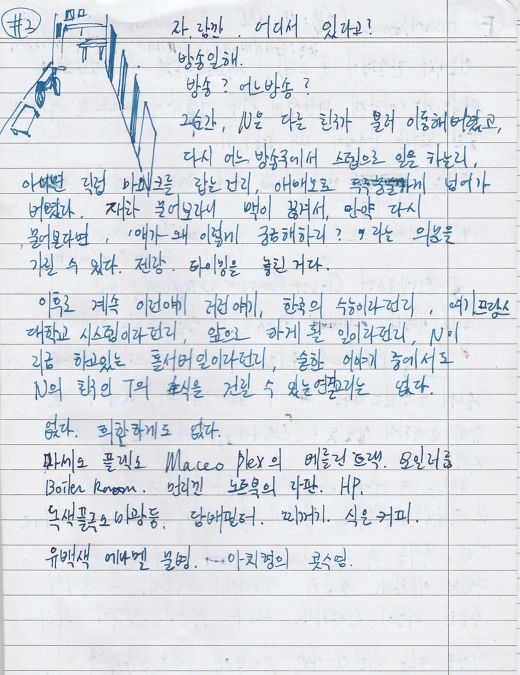 #3
자, 잠깐. 어디서 있다고?
방송일해.
방송? 어느방송?
그순간, N은 다른 친구가 불러 이동해버렸고,
다시 어느 방송국에서 스텝으로 일을 하는지,
아니면 직접 마이크를 잡는건지, 애매모호 하게 넘어가
버렸다. 재차 물어보자니 맥이 끊겨서, 만약 다시
물어본다면, '얘가 왜 이렇게 궁금해하지?' 라는 의문을
가질 수 있다. 젠장. 타이밍을 놓친 거다.
이후로 계속 이런얘기 저런얘기, 한국의 수능이라던지, 여기 프랑스
대학교 시스템이라던지, 앞으로 하게 될 일이라던지, N이
지금 하고있는 일이라던지, 숱한 이야기 중에서도
N의 친구인 T의 소식을 건질 수 있는 연결고리는 없다.
없다. 희한하게도 없다.
마세오 플렉스 Maceo Plex의 베를린 트랙. 보일러룸
Boiler Room. 노트북의 자판. HP.
녹색 담배필터. 찌꺼기. 식은 커피.
유백색 에나멜 물병. 아치형의 콧수염.